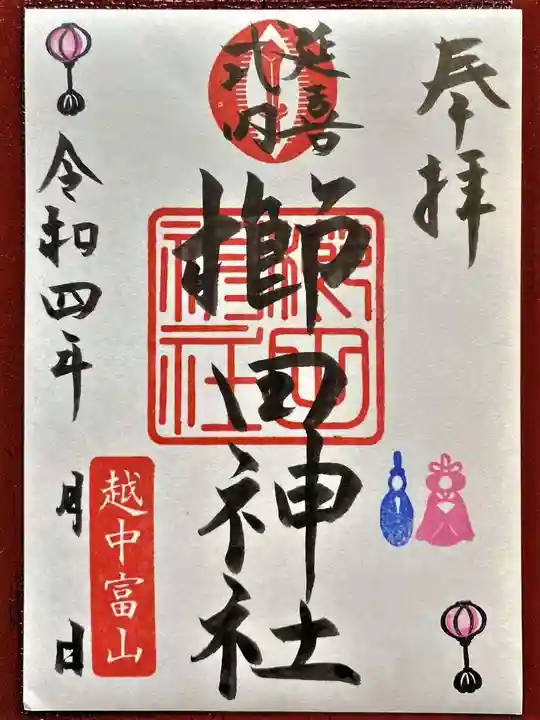 奉拝
延喜
式内
櫛田神社
櫛田
神社
越中富山
令和四年 月 日